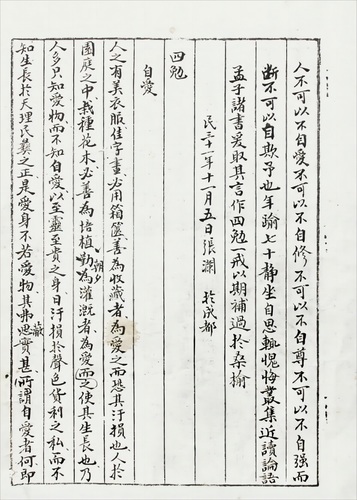 人不可以不自愛不可以不自修不可以不自尊不可以不自强而
断不可以自欺予也年踰七十静坐自思輒愧悔叢集近讀論語
孟子諸書爰取其言作四勉一戒以期補過於桑榆
民三十一年十一月五日張瀾 於成都
四勉
自愛
人之有美衣服佳字畫必用箱篋善為收藏者為愛之而恐其汙損也人於
園庭之中栽種花木必善為培植朝夕勤為灌溉者為愛而之使其生長也乃
人多只知愛物而不知自愛以至靈至貴之身日汙損於聲色貨利之私而不
知生長於天理民彝之正是愛身不若愛物其弗思實甚蔽所謂自愛者何即